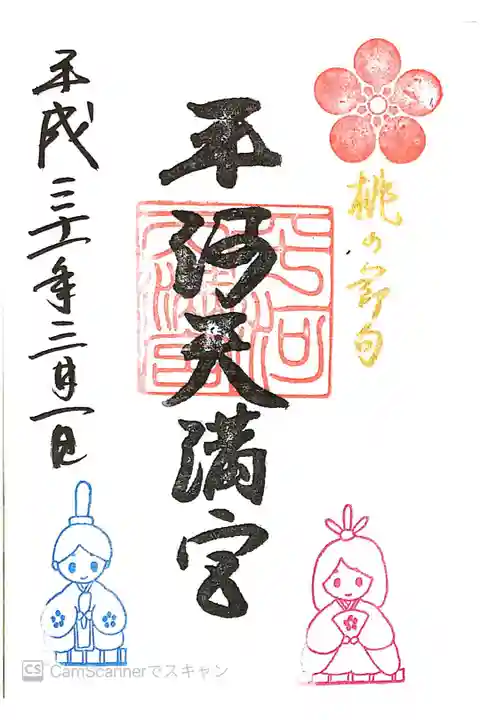 桃の節句
平河天満宮
平成三十一年三月一日
CS CamScannerでスキャン